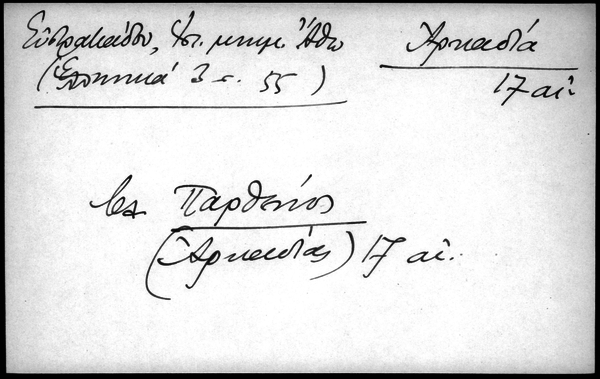 Εὐστρατιάδου, Ἱστ. μνημ. Ἄθω
(Ἑλληνικά 3 σ. 55)
Ἀρκαδία
17 αἰ.
βλ. Παρθένιος
(Ἀρκαδίας) 17 αἰ.